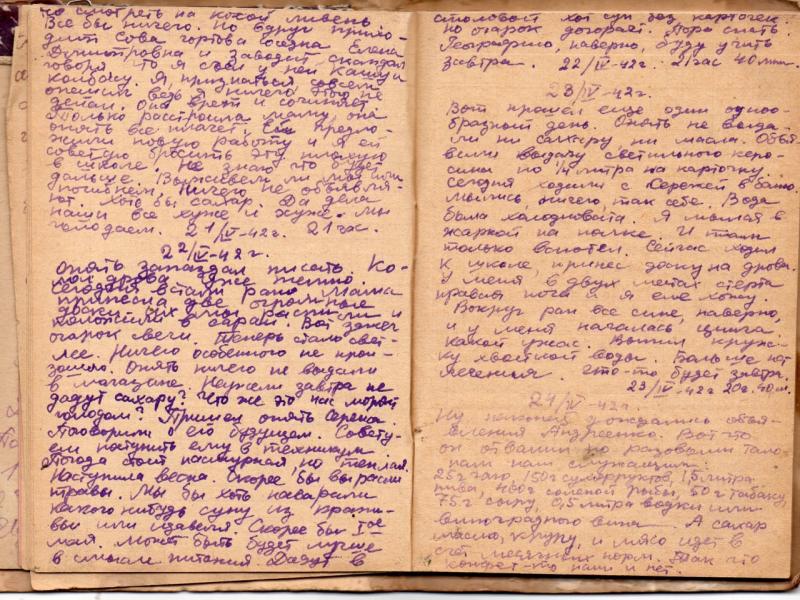 но смотреть на какой ливень
Все бы ничего. Но вдруг прихо-
дит Сова, гортова соседка Елена
Дмитровна и заводит скандал
говоря что я с'ел у ней кашу и
колбасу. Я, признаться, совсем
опешил ведь я ничего этого не
делал. Она врет и сочиняет
Только расстроила маму, она
опять все плачет. Ей предло-
жили новую работу и я ей
советую бросить эту
в школе. Не знаю что будет
дальше. Выживем ли мы или
погибнем. Ничего не объявля-
ют. Хотя бы сахар. Да дела
наши все хуже и хуже. Мы
голодаем. 21/IV-42г. 21 час.
22/IV-42г.
Опять запоздал писать. Ко-
Сегодня встали рано. Мама
принесла две огромные
доски, их мы распилили и
положили в сарай. Вот зажег
огарок свечи. Теперь стало свет-
лее. Ничего особенного не прои-
зошло. Опять ничего не выдали
в магазине. Неужели завтра не
дадут сахару? Что же это нас морят
голодом? Пришел опять Сережа.
Поговорили о его будущем. Совету-
ем поступить ему в техникум.
Погода стоит пасмурная, но теплая.
Наступила весна. Скорее бы выросли
травы. Мы бы хоть наварили
какого нибудь супу из крапи-
вы или щавеля. Скорее бы Iое
мая. Может быть будет лучше
в смысле питания. Дадут в
столовой хоть суп без карточек.
Но огарок догорает. Пора спать.
Географию, наверно, буду учить
завтра. 22/IV-42г. 21 час 40 мин.
23/IV-42г.
Вот прошел еще один одноо-
бразный день. Опять не выда-
ли ни сахару ни масла. Объя-
вили выдачу светильного керо-
сина по 1/4 литра на карточку.
Сегодня ходили с Сережей в баню.
Мылись, ничего, так себе. Вода
была холодновата. Я мылся в
жаркой на полке. И там
только вспотел. Сейчас ходил
к школе, принес доску на дрова.
У меня в двух местах стерта
правая нога и я еле хожу.
Вокруг ран все сине, наверно,
и у меня началась цынга.
Какой ужас. Выпил круж-
ку хвойной воды. Больше нет
лечения. Что-то будет завтра.
23/IV-42г 20г. 40 м.
24/IV-42г.
Ну наконец дождались объя-
вления Андреенко. Вот что
он отвалил по разовым тало-
нам нам служащим:
25г чаю, 150г сухофруктов, 1,5 литра
пива, 400г соленой рыбы, 50г табаку,
75г сыру, 0,5 литра водки или
виноградного вина. А сахар
масло, крупу, и мясо идет в
счет месячных норм. Так что
конфет-то нам и нет.